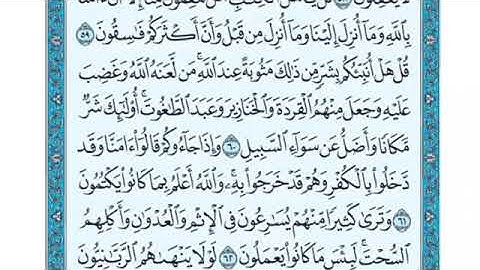 بِٱللَّهِ وَمَآ أُنزِلَ إِلَيْنَا وَمَآ أُنزِلَ مِن قَبْلُ وَأَنَّ أَكْثَرَكُمْ فَٰسِقُونَ ٥٩
قُلْ هَلْ أُنَبِّئُكُم بِشَرٍّ مِّن ذَٰلِكَ مَثُوبَةً عِندَ ٱللَّهِ ۚ مَن لَّعَنَهُ ٱللَّهُ وَغَضِبَ
عَلَيْهِ وَجَعَلَ مِنْهُمُ ٱلْقِرَدَةَ وَٱلْخَنَازِيرَ وَعَبَدَ ٱلطَّٰغُوتَ ۚ أُو۟لَٰٓئِكَ شَرٌّ
مَّكَانًا وَأَضَلُّ عَن سَوَآءِ ٱلسَّبِيلِ ٦٠ وَإِذَا جَآءُوكُمْ قَالُوٓا۟ ءَامَنَّا وَقَد
دَّخَلُوا۟ بِٱلْكُفْرِ وَهُمْ قَدْ خَرَجُوا۟ بِهِۦ ۚ وَٱللَّهُ أَعْلَمُ بِمَا كَانُوا۟ يَكْتُمُونَ
٦١ وَتَرَىٰ كَثِيرًا مِّنْهُمْ يُسَٰرِعُونَ فِى ٱلْإِثْمِ وَٱلْعُدْوَٰنِ وَأَكْلِهِمُ
ٱلسُّحْتَ ۚ لَبِئْسَ مَا كَانُوا۟ يَعْمَلُونَ ٦٢ لَوْلَا يَنْهَىٰهُمُ ٱلرَّبَّٰنِيُّونَ